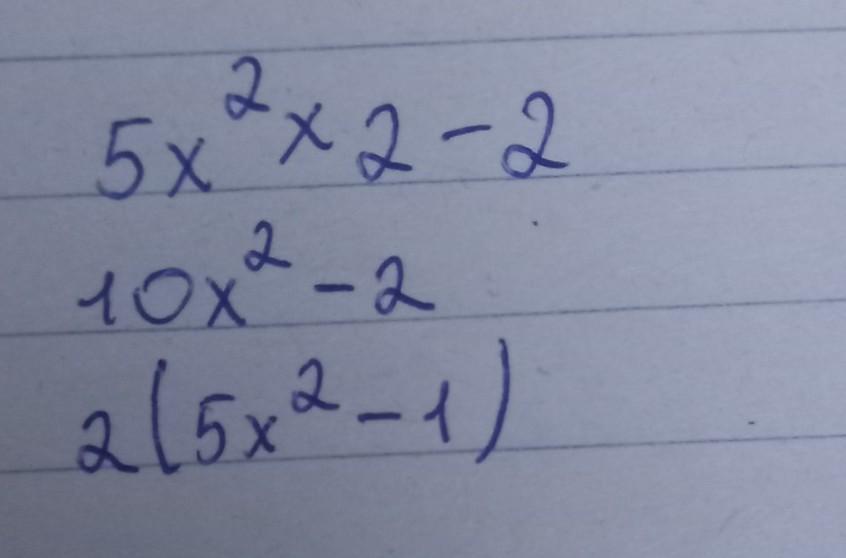 5x² × 2 - 2
10x² - 2
2(5x² - 1)